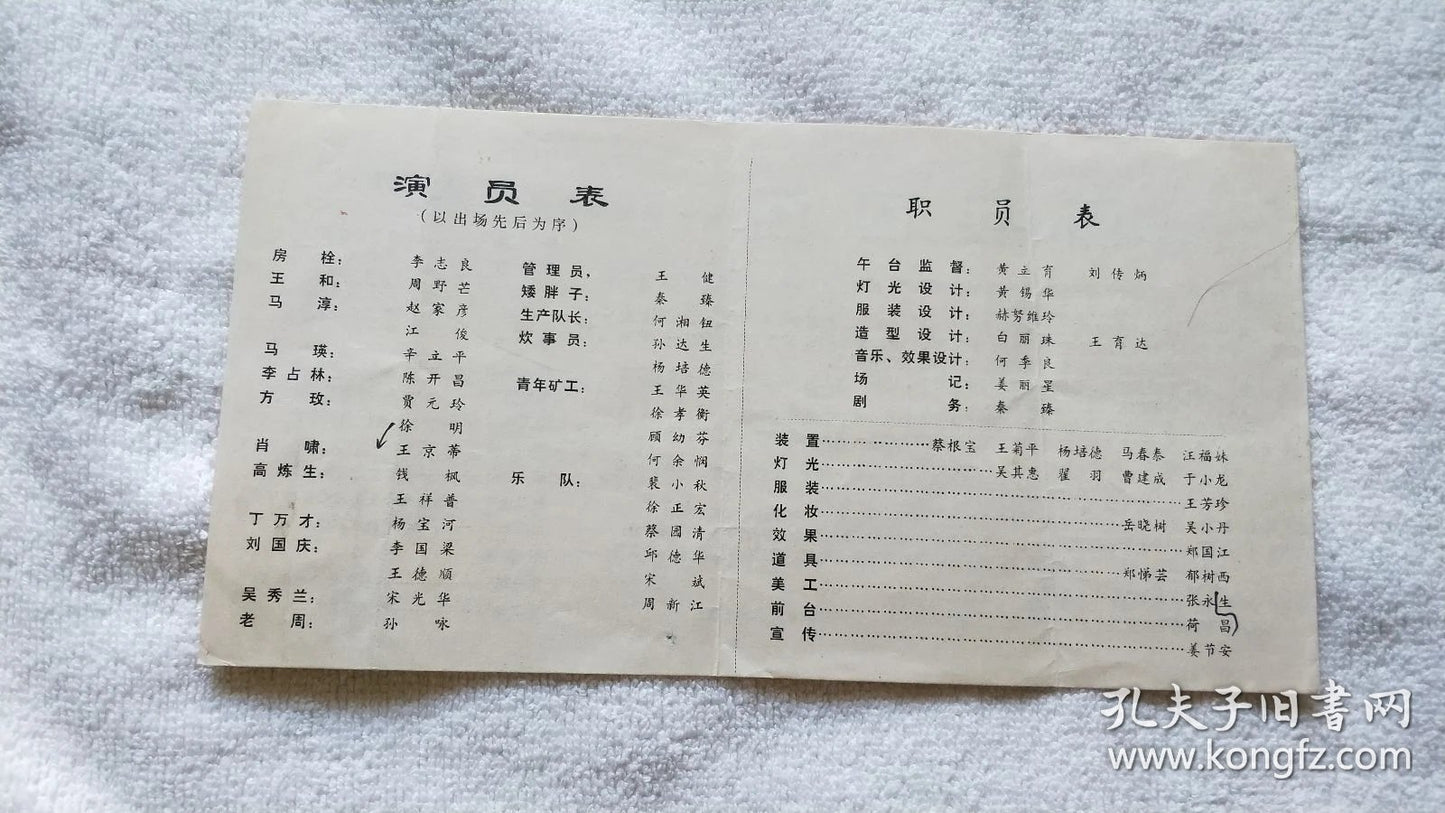 演员表
（以出场先后为序）
房栓： 李志良
王和： 周野芒
马淳： 赵家彦
江俊
马瑛： 辛立平
李占林： 陈开昌
方玫： 贾元玲
徐明
肖啸： 王京蒂
高炼生： 钱枫
王祥普
丁万才： 杨宝河
刘国庆： 李国梁
王德顺
吴秀兰： 宋光华
老周： 孙咏
管理员， 王健
矮胖子： 秦臻
生产队长： 何湘钮
炊事员： 孙达生
杨培德
青年矿工： 王华英
徐孝衡
顾幼芬
何余悯
乐队： 裴小秋
徐正宏
蔡园清
邱德华
宋斌
周新江
职员表
午台监督： 黄立育 刘传炳
灯光设计： 黄锡华
服装设计： 赫努维玲
造型设计： 白丽珠 王育达
音乐、效果设计： 何季良
场记： 姜丽星
剧务： 秦臻
装置…………………蔡根宝 王菊平 杨培德 马春泰 汪福妹
灯光…………………吴其惠 翟羽 曹建成 于小龙
服装…………………王芳珍
化妆…………………岳晓树 吴小丹
效果…………………郑国江
道具…………………郑悌芸 郁树西
美工…………………张永生
前台…………………荷昌
宣传…………………姜节安
孔夫子旧书网
www.kongfz.com